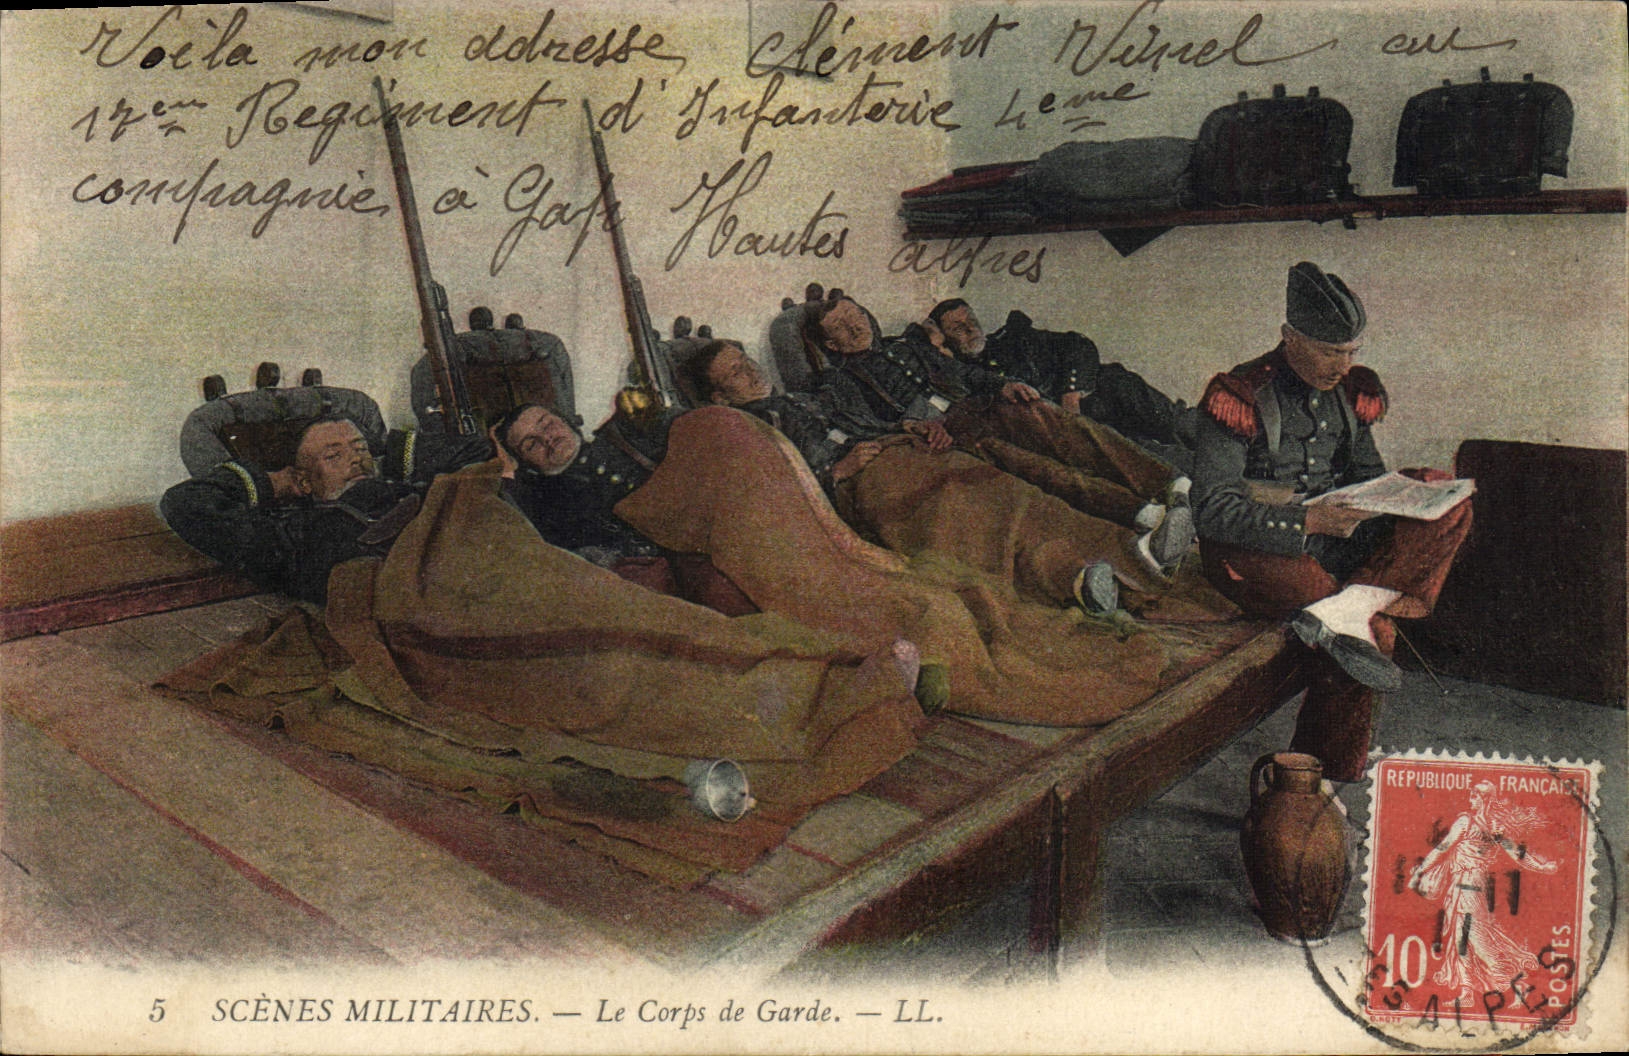 Voila mon adresse Clément Vinel au
17eme Regiment d'Infanterie 4eme
compagnie à Gap Hautes alpes
REPUBLIQUE FRANÇAISE
11 -11
11
10c POSTES
ES ALPES
5 SCÈNES MILITAIRES. — Le Corps de Garde. — LL.